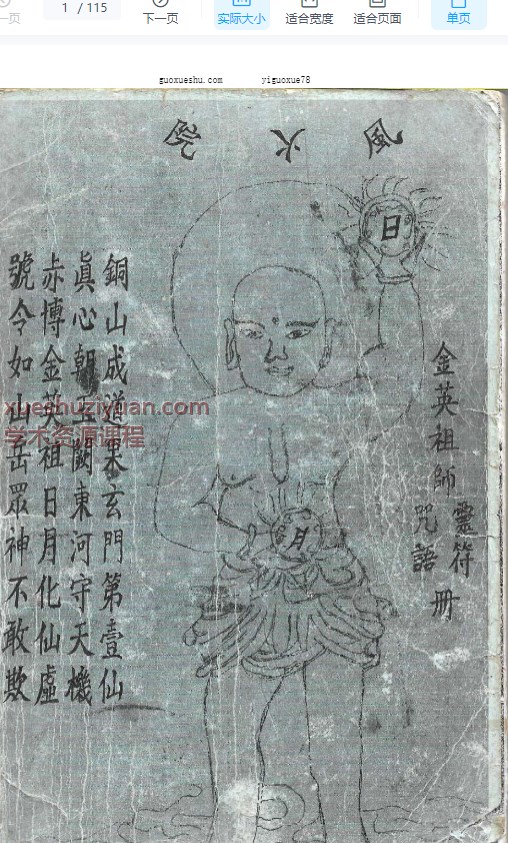 一页
1 / 115
下一页
实际大小
适合宽度
适合页面
单页
guoxueshu.com yiguoxue78
風火院
日
月
金英祖師
靈符
咒語
冊
銅山成道果玄門第壹仙
眞心朝玉闕東河守天機
赤博金英祖日月化仙虛
號令如山岳眾神不敢欺
xueshuziyuan.com
学术资源课程